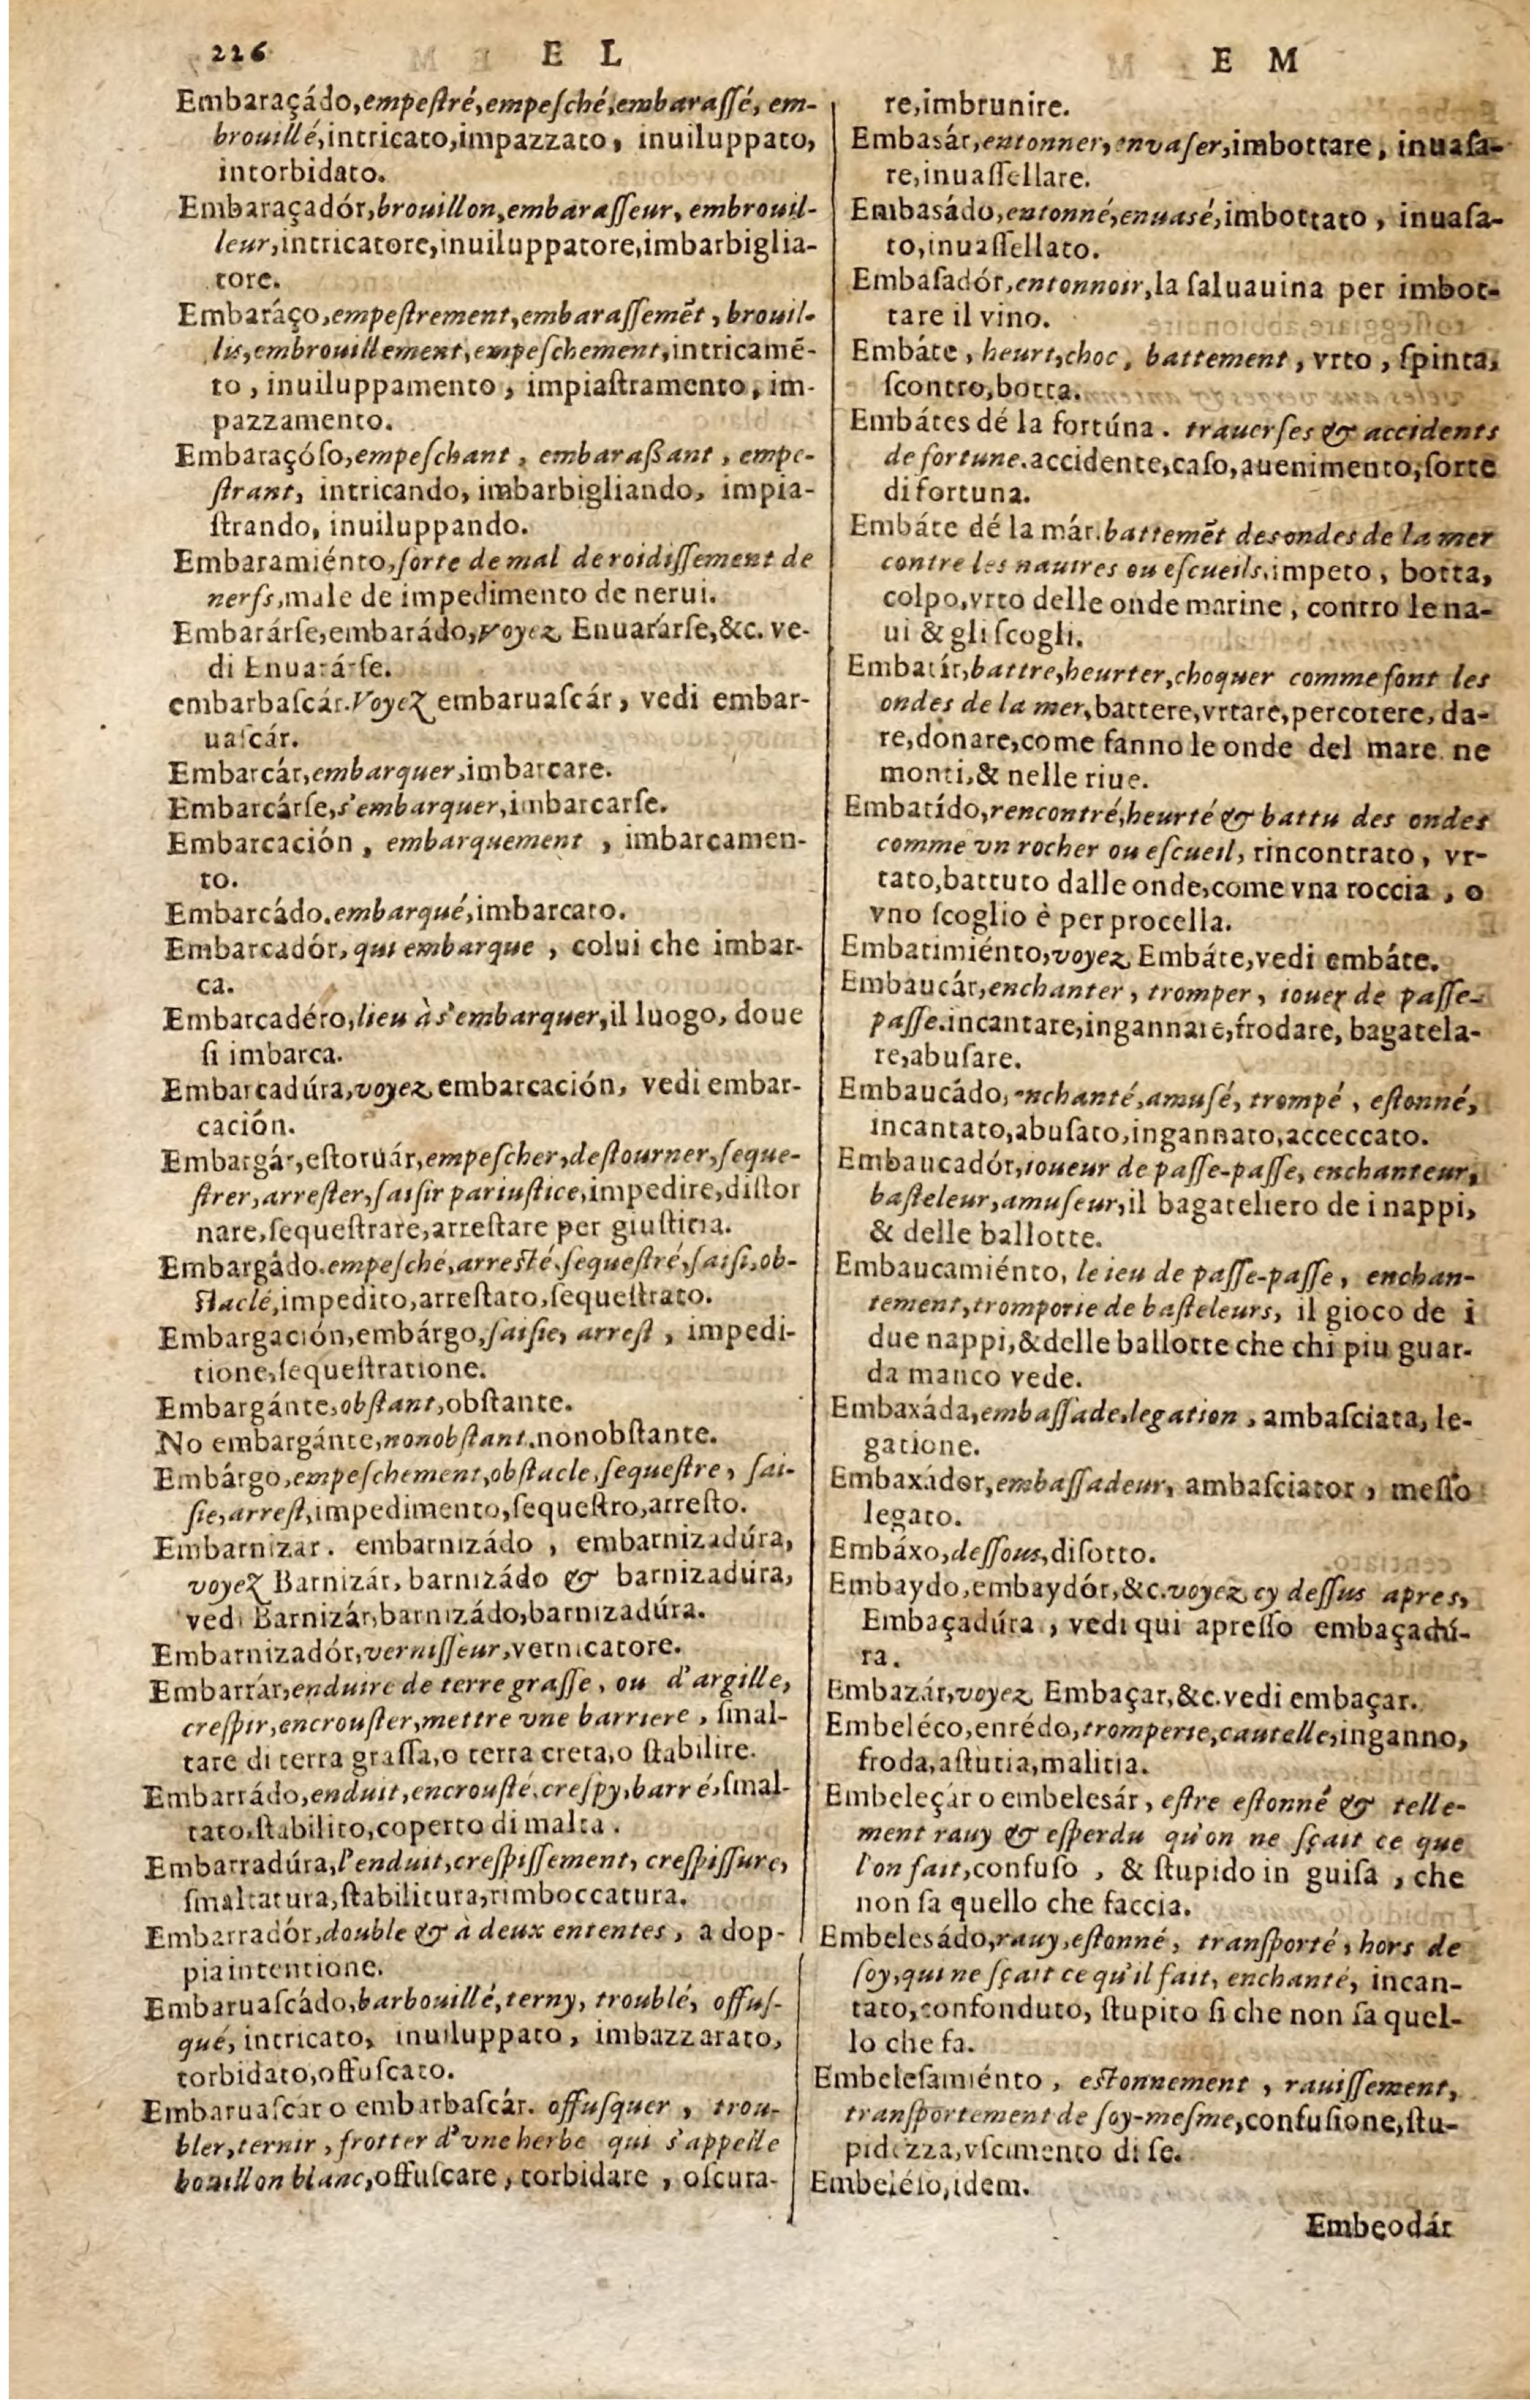 226 E L
Embaraçádo, empeſtré, empeſché, embaraſſé, em-
brouillé, intricato, impazzato, inuiluppato,
intorbidato.
Embaraçadór, brouillon, embaraſſeur, embrouil-
leur, intricatore, inuiluppatore, imbarbiglia-
tore.
Embaráço, empeſtrement, embaraſſemẽt, brouil-
lis, embrouillement, empeſchement, intricamẽ-
to, inuiluppamento, impiaſtramento, im-
pazzamento.
Embaraçóſo, empeſchant, embaraßant, empe-
ſtrant, intricando, imbarbigliando, impia-
ſtrando, inuiluppando.
Embaramiénto, ſorte de mal de roidiſſement de
nerfs, male de impedimento de nerui.
Embarárſe, embarádo, voyez Enuararſe, &c. ve-
di Enuarárſe.
embarbaſcár. Voyez embaruaſcár, vedi embar-
uaſcár.
Embarcár, embarquer, imbarcare.
Embarcárſe, s'embarquer, imbarcarſe.
Embarcación, embarquement, imbarcamen-
to.
Embarcádo. embarqué, imbarcato.
Embarcadór, qui embarque, colui che imbar-
ca.
Embarcadéro, lieu à s'embarquer, il luogo, doue
ſi imbarca.
Embarcadúra, voyez embarcación, vedi embar-
cación.
Embargár, eſtoruár, empeſcher, deſtourner, ſeque-
ſtrer, arreſter, ſaiſir par iuſtice, impedire, diſtor
nare, ſequeſtrare, arreſtare per giuſtitia.
Embargádo. empeſché, arreſté, ſequeſtré, ſaiſi, ob-
ſtaclé, impedito, arreſtato, ſequeſtrato.
Embargación, embárgo, ſaiſie, arreſt, impedi-
tione, ſequeſtratione.
Embargánte, obſtant, obſtante.
No embargánte, nonobſtant. nonobſtante.
Embárgo, empeſchement, obſtacle, ſequeſtre, ſai-
ſie, arreſt, impedimento, ſequeſtro, arreſto.
Embarnizar. embarnizádo, embarnizadúra,
voyez Barnizár, barnizádo & barnizadúra,
vedi Barnizár, barnizádo, barnizadúra.
Embarnizadór, verniſſeur, vernicatore.
Embarrár, enduire de terre graſſe, ou d'argille,
creſpir, encrouſter, mettre vne barriere, ſmal-
tare di terra graſſa, o terra creta, o ſtabilire.
Embarrádo, enduit, encrouſté, creſpy, barré, ſmal-
tato, ſtabilito, coperto di malta.
Embarradúra, l'enduit, creſpiſſement, creſpiſſure,
ſmaltatura, ſtabilitura, rimboccatura.
Embarradór, double & à deux ententes, a dop-
pia intentione.
Embaruaſcádo, barbouillé, terny, troublé, offuſ-
qué, intricato, inuiluppato, imbazzarato,
torbidato, offuſcato.
Embaruaſcár o embarbaſcár. offuſquer, trou-
bler, ternir, frotter d'vne herbe qui s'appelle
bouillon blanc, offuſcare, torbidare, oſcura-
E M
re, imbrunire.
Embasár, entonner, envaſer, imbottare, inuaſa-
re, inuaſſellare.
Embasádo, entonné, enuasé, imbottato, inuaſa-
to, inuaſſellato.
Embaſadór, entonnoir, la ſaluauina per imbot-
tare il vino.
Embáte, heurt, choc, battement, vrto, ſpinta,
ſcontro, botta.
Embátes dé la fortúna. trauerſes & accidents
de fortune. accidente, caſo, auenimento, ſorte
di fortuna.
Embáte dé la már. battemẽt des ondes de la mer
contre les nauires ou eſcueils, impeto, botta,
colpo, vrto delle onde marine, contro le na-
ui & gli ſcogli.
Embatír, battre, heurter, choquer comme font les
ondes de la mer, battere, vrtare, percotere, da-
re, donare, come fanno le onde del mare ne
monti, & nelle riue.
Embatído, rencontré, heurté & battu des ondes
comme vn rocher ou eſcueil, rincontrato, vr-
tato, battuto dalle onde, come vna roccia, o
vno ſcoglio è per procella.
Embatimiénto, voyez Embáte, vedi embáte.
Embaucár, enchanter, tromper, iouer de paſſe-
paſſe. incantare, ingannare, frodare, bagatela-
re, abuſare.
Embaucádo, enchanté, amusé, trompé, eſtonné,
incantato, abuſato, ingannato, acceccato.
Embaucadór, ioueur de paſſe-paſſe, enchanteur,
baſteleur, amuſeur, il bagateliero de i nappi,
& delle ballotte.
Embaucamiénto, le ieu de paſſe-paſſe, enchan-
tement, tromperie de baſteleurs, il gioco de i
due nappi, & delle ballotte che chi piu guar-
da manco vede.
Embaxáda, embaſſade, legation, ambaſciata, le-
gatione.
Embaxádor, embaſſadeur, ambaſciator, meſſo
legato.
Embáxo, deſſous, diſotto.
Embaydo, embaydór, &c. voyez cy deſſus apres,
Embaçadúra, vedi qui apreſſo embaçadú-
ra.
Embazár, voyez Embaçar, &c. vedi embaçar.
Embeléco, enrédo, tromperie, cautelle, inganno,
froda, aſtutia, malitia.
Embeleçár o embelesár, eſtre eſtonné & telle-
ment rauy & eſperdu qu'on ne ſçait ce que
l'on fait, confuſo, & ſtupido in guiſa, che
non ſa quello che faccia.
Embelesádo, rauy, eſtonné, tranſporté, hors de
ſoy, qui ne ſçait ce qu'il fait, enchanté, incan-
tato, confonduto, ſtupito ſi che non ſa quel-
lo che fa.
Embeleſamiénto, eſtonnement, rauiſſement,
tranſportement de ſoy-meſme, confuſione, ſtu-
pidezza, vſcimento di ſe.
Embeléſo, idem.
Embeodár